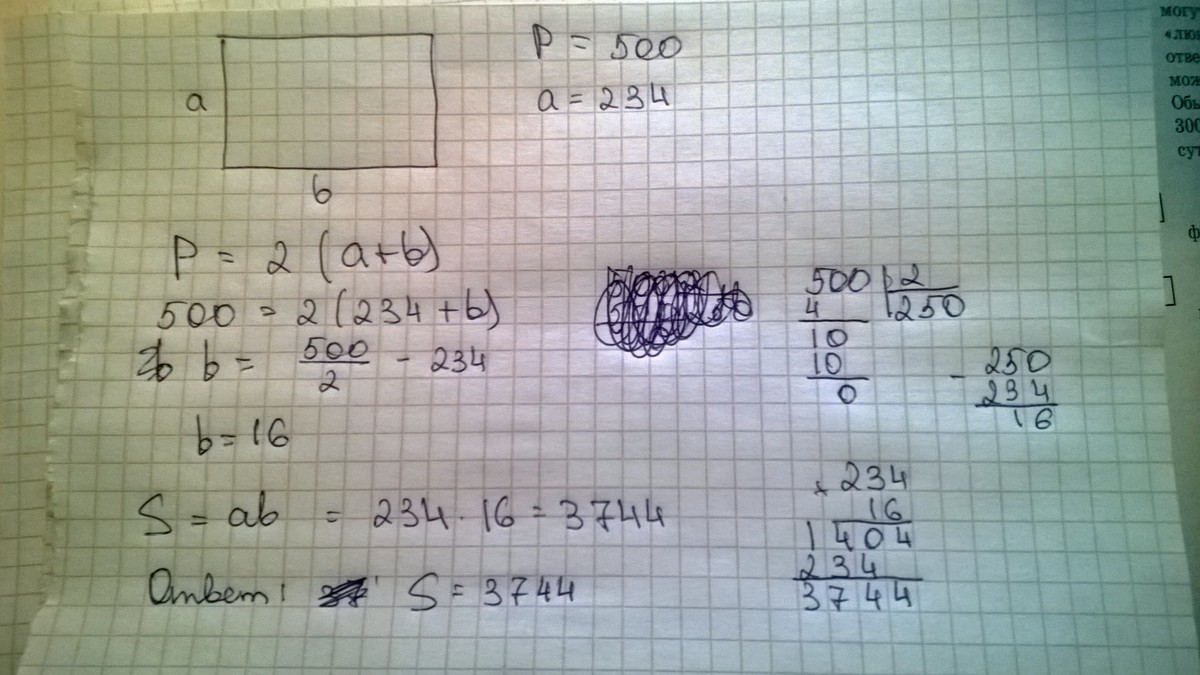 a
b
P = 500
a = 234
P = 2 (a+b)
500 = 2 (234 + b)
b = 500/2 - 234
b = 16
S = ab = 234 · 16 = 3744
Ответ: S = 3744
500 2
4 250
10
10
0
- 250
234
16
× 234
16
1404
234
3744
могу
отве
мож
Обы
300
сут
]
ф
]